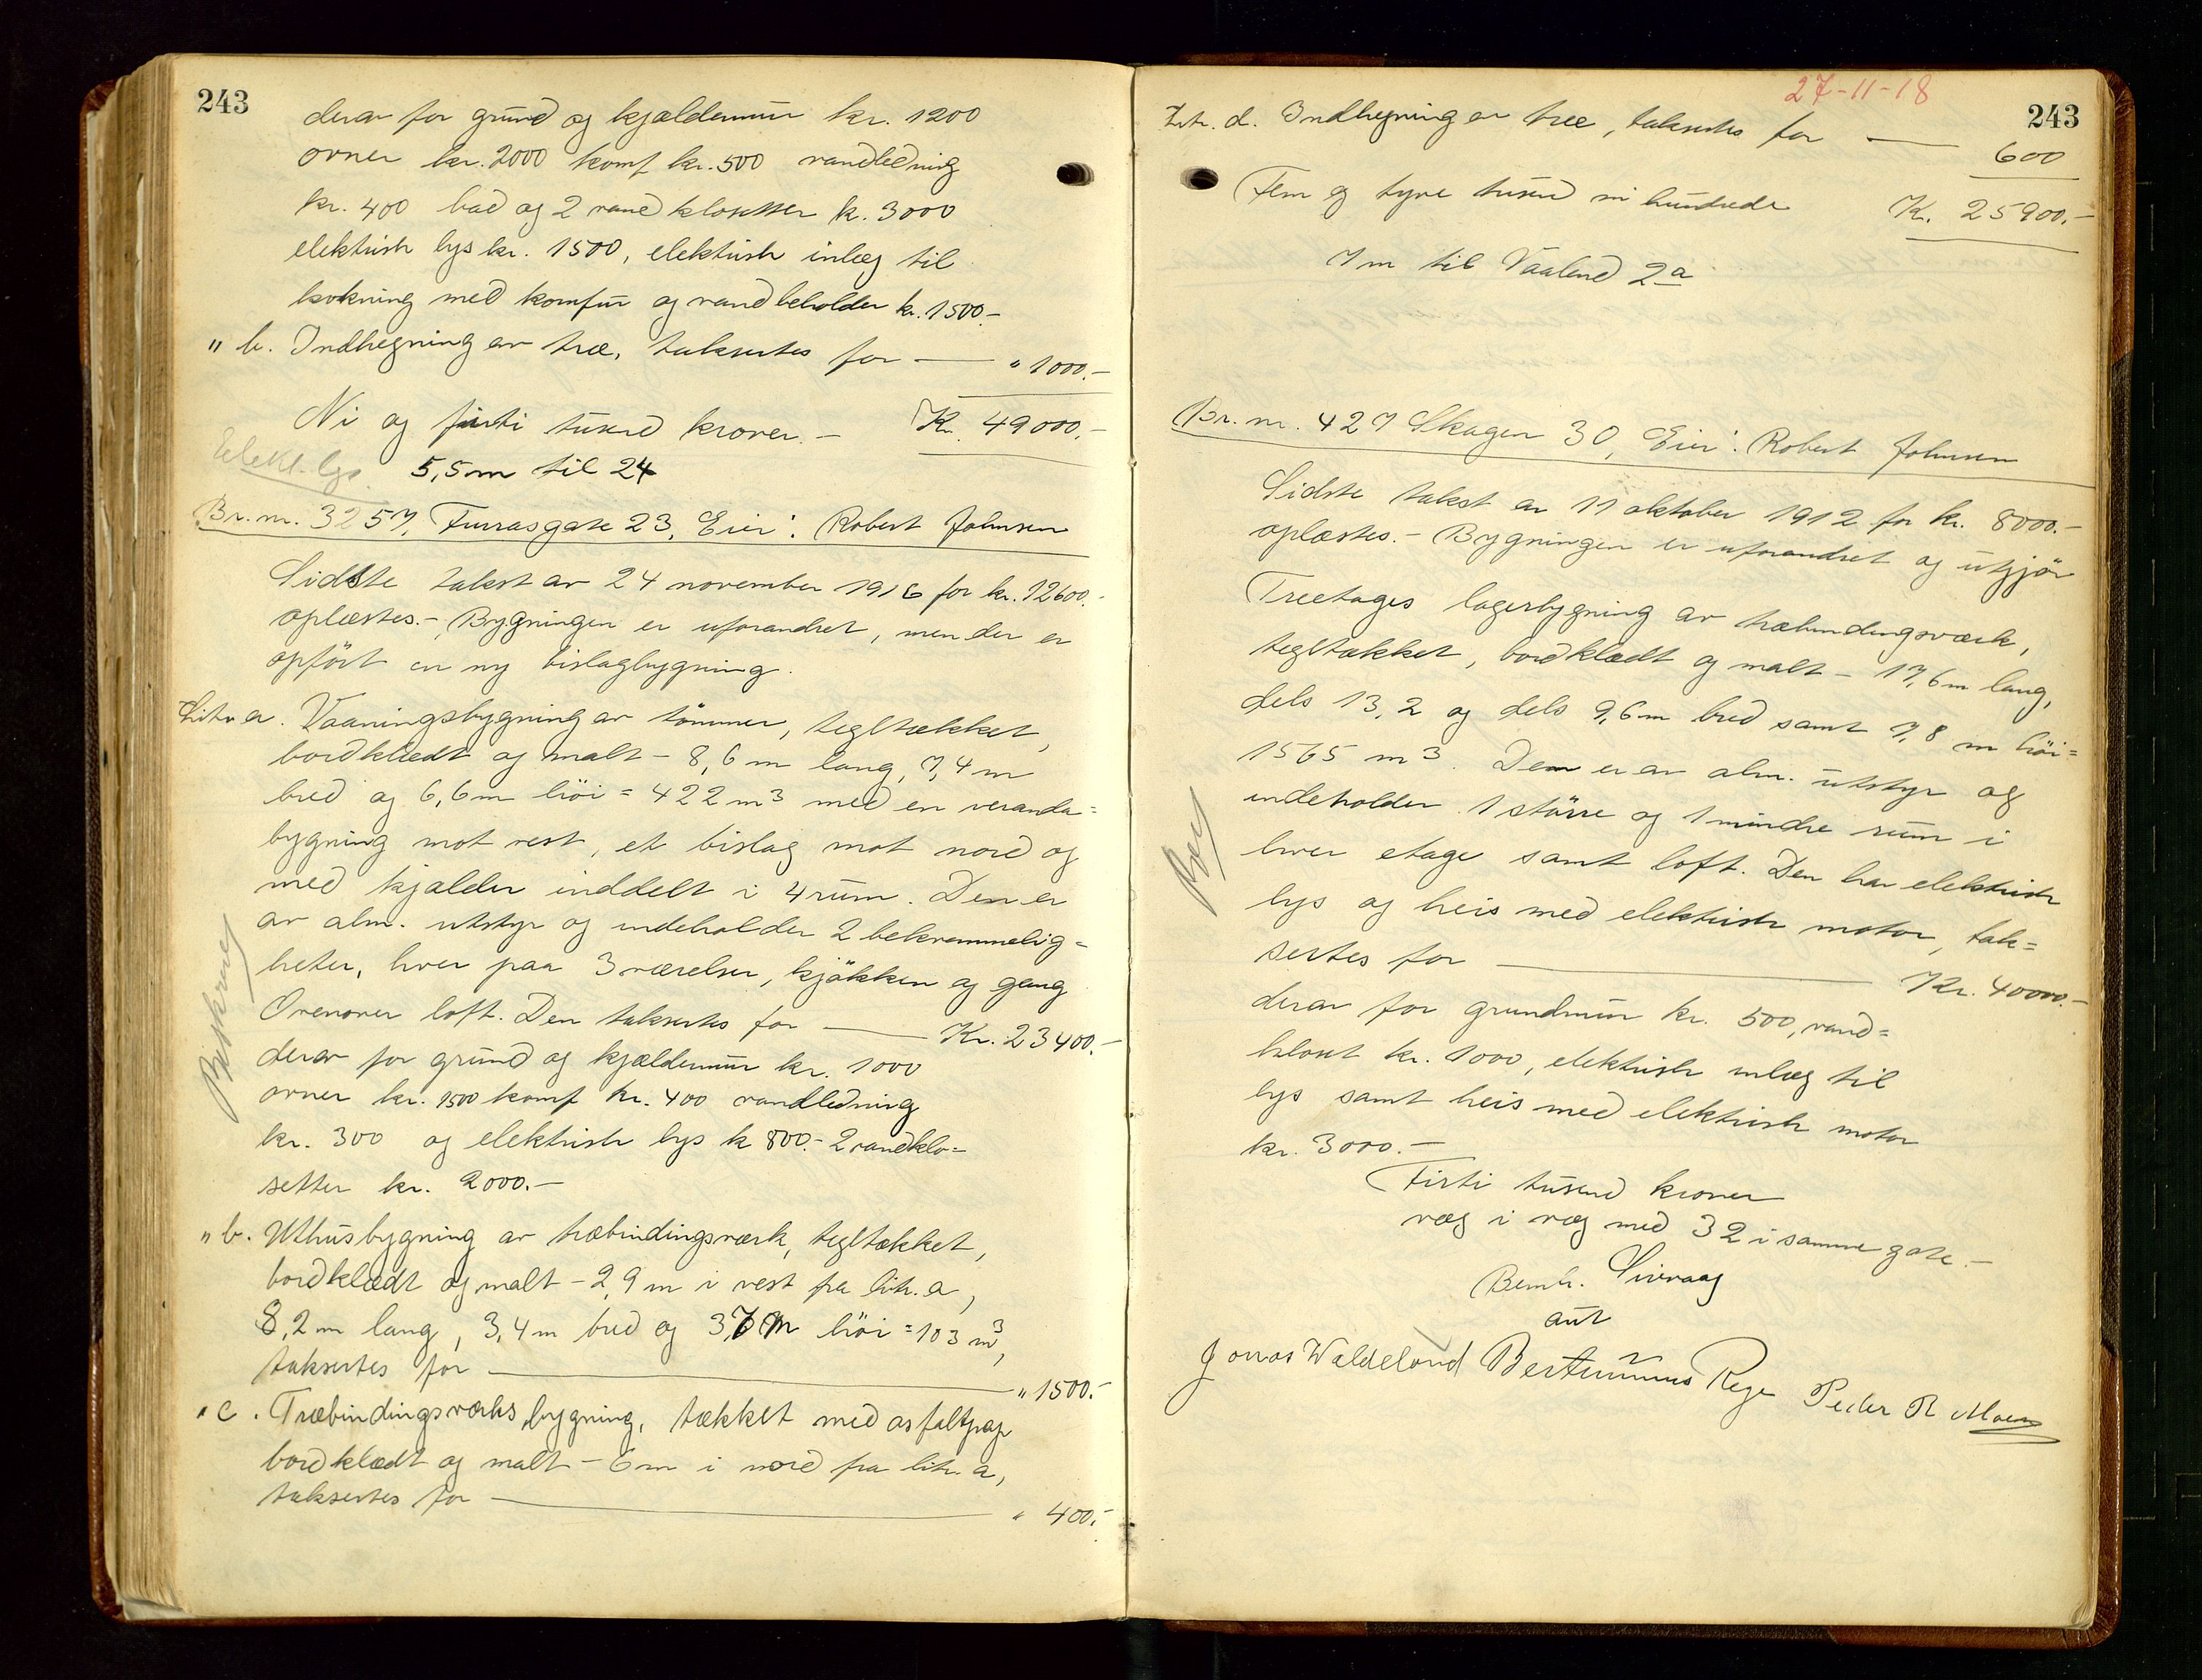 243
derav for grund og kjældermur kr. 1200
ovner kr. 2000 komf kr. 500 vandledning
kr. 400 bad og 2 vandklosetter k. 3000
elektrisk lys kr. 1500, elektrisk inlæg til
kokning med komfur og vandbeholder kr. 1500.-
" b. Indhegning av træ, taksertes for — " 1000.-
Ni og firti tusend kroner.- Kr. 49000.-
Elekt. lys. 5,5m til 24
Br. nr. 3257, Furrasgate 23, Eier: Robert Johnsen
Sidste takst av 24 november 1916 for kr. 12600.-
oplæstes.- Bygningen er uforandret, men der er
opført en ny bislagbygning.
Litr a. Vaaningsbygning av tømmer, tegltækket,
bordklædt og malt - 8,6 m lang, 7,4 m
bred og 6,6m høi = 422 m3 med en veranda=
bygning mot vest, et bislag mot nord og
med kjælder inddelt i 4 rum. Den er
av alm. utstyr og indeholder 2 bekvemmelig=
heter, hver paa 3 værelser, kjøkken og gang
Ovenover loft. Den taksertes for — Kr. 23400.-
derav for grund og kjældermur kr. 1000
ovner kr. 1500 komf kr. 400 vandledning
kr. 300 og elektrisk lys k 800.- 2 vandklo=
setter kr. 2000.-
" b. Uthusbygning av træbindingsværk, tegltækket,
bordklædt og malt - 2,9 m i vest fra litr. a,
8,2 m lang, 3,4 m bred og 3,7 m høi = 103 m3,
taksertes for — " 1500.-
" c. Træbindingsverks bygning, tækket med asfaltpap
bordklædt og malt - 6 m i nord fra litr. a,
taksertes for — " 400.-
Beskrev
27-11-18
243
Litr. d. Indhegning av træ, taksertes for — 600
Fem og tyve tusend ni hundrede Kr. 25900.-
7 m til Vaaland 2a
Br. nr. 427 Skagen 30, Eier: Robert Johnsen
Sidste takst av 11 oktober 1912 for kr. 8000.-
oplæstes.- Bygningen er uforandret og utgjør
Treetages lagerbygning av træbindingsværk,
tegltækket, bordklædt og malt - 17,6 m lang,
dels 13,2 og dels 9,6 m bred samt 7,8 m høi =
1565 m3. Den er av alm. utstyr og
indeholder 1 større og 1 mindre rum i
hver etage samt loft. Den har elektrisk
lys og heis med elektrisk motor, tak=
sertes for — Kr. 40000.-
derav for grundmur kr. 500, vand=
kloset kr. 1000, elektrisk inlæg til
lys samt heis med elektrisk motor
kr. 3000.-
Firti tusend kroner
væg i væg med 32 i samme gate.-
Bernh. Sirevaag
aut
Jonas Waldeland Bertinius Rege Peder R Moen